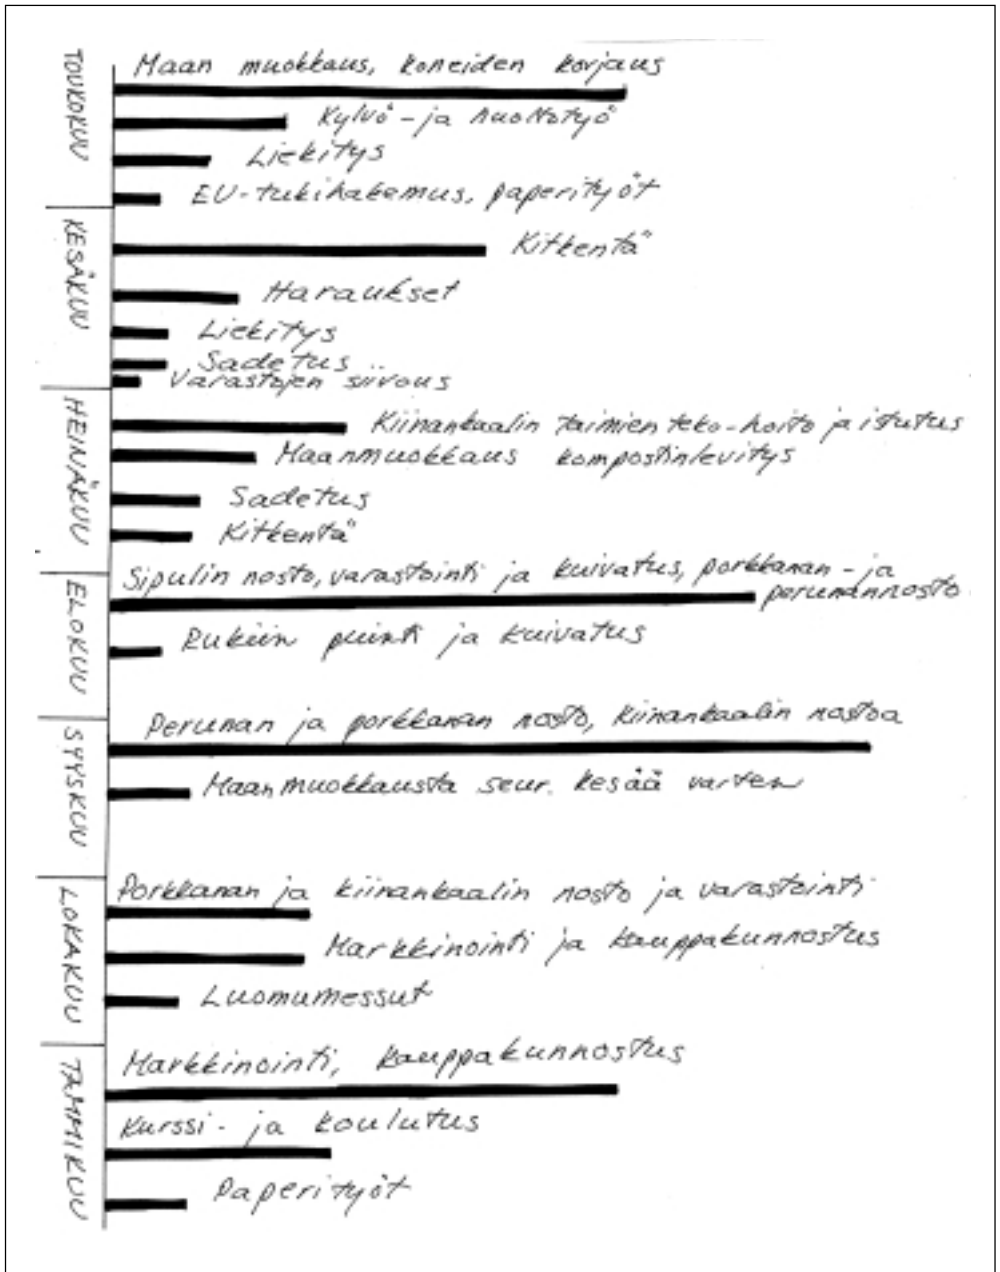 TOUKOKUU
Maan muokkaus, koneiden korjaus
Kylvö- ja huoltotyö
Liekitys
EU-tukihakemus, paperityöt
KESÄKUU
Kitkentä
Haraukset
Liekitys
Sadetus
Varastojen siivous
HEINÄKUU
Kiinankaalin taimien teko-hoito ja istutus
Maanmuokkaus kompostinlevitys
Sadetus
Kitkentä
ELOKUU
Sipulin nosto, varastointi ja kuivatus, porkkanan- ja
perunannosto
Rukiin puinti ja kuivatus
SYYSKUU
Perunan ja porkkanan nosto, kiinankaalin nostoa
Maanmuokkausta seur. kesää varten
LOKAKUU
Porkkanan ja kiinankaalin nosto ja varastointi
Markkinointi ja kauppakunnostus
Luomumessut
TAMMIKUU
Markkinointi, kauppakunnostus
Kurssi- ja koulutus
Paperityöt